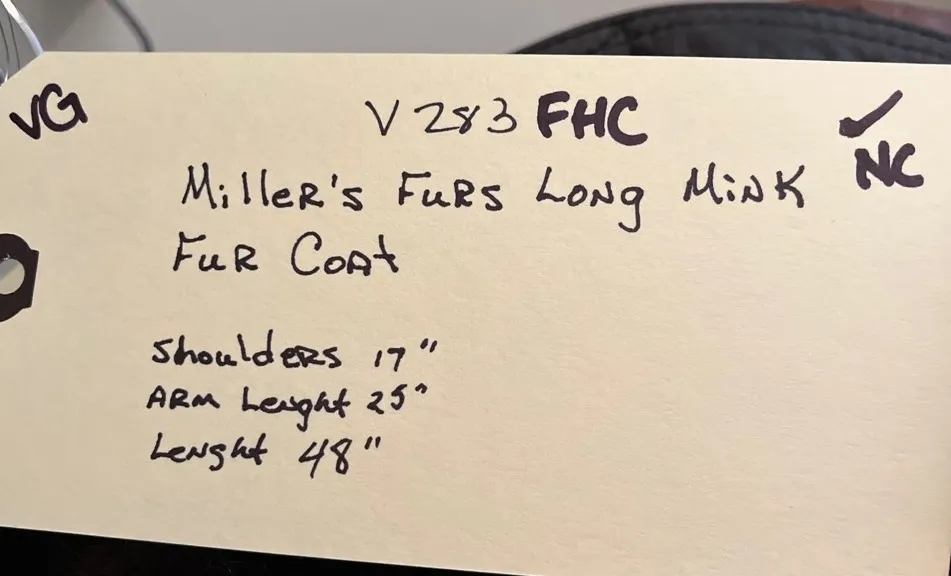 VG
V283 FHC
✓
NC
Miller's Furs Long Mink
Fur Coat
Shoulders 17"
Arm Lenght 25"
Lenght 48"